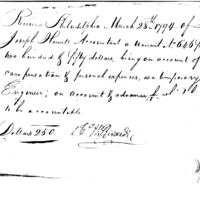 Received Philadelphia March 28th 1794 of
Joseph Howell Accountant a warrant No
two hundred & fifty dollars, being on account of
compensation & personal expences, as a temporary
Engineer; on account & advance for which I
to be accountable
Dollars 250